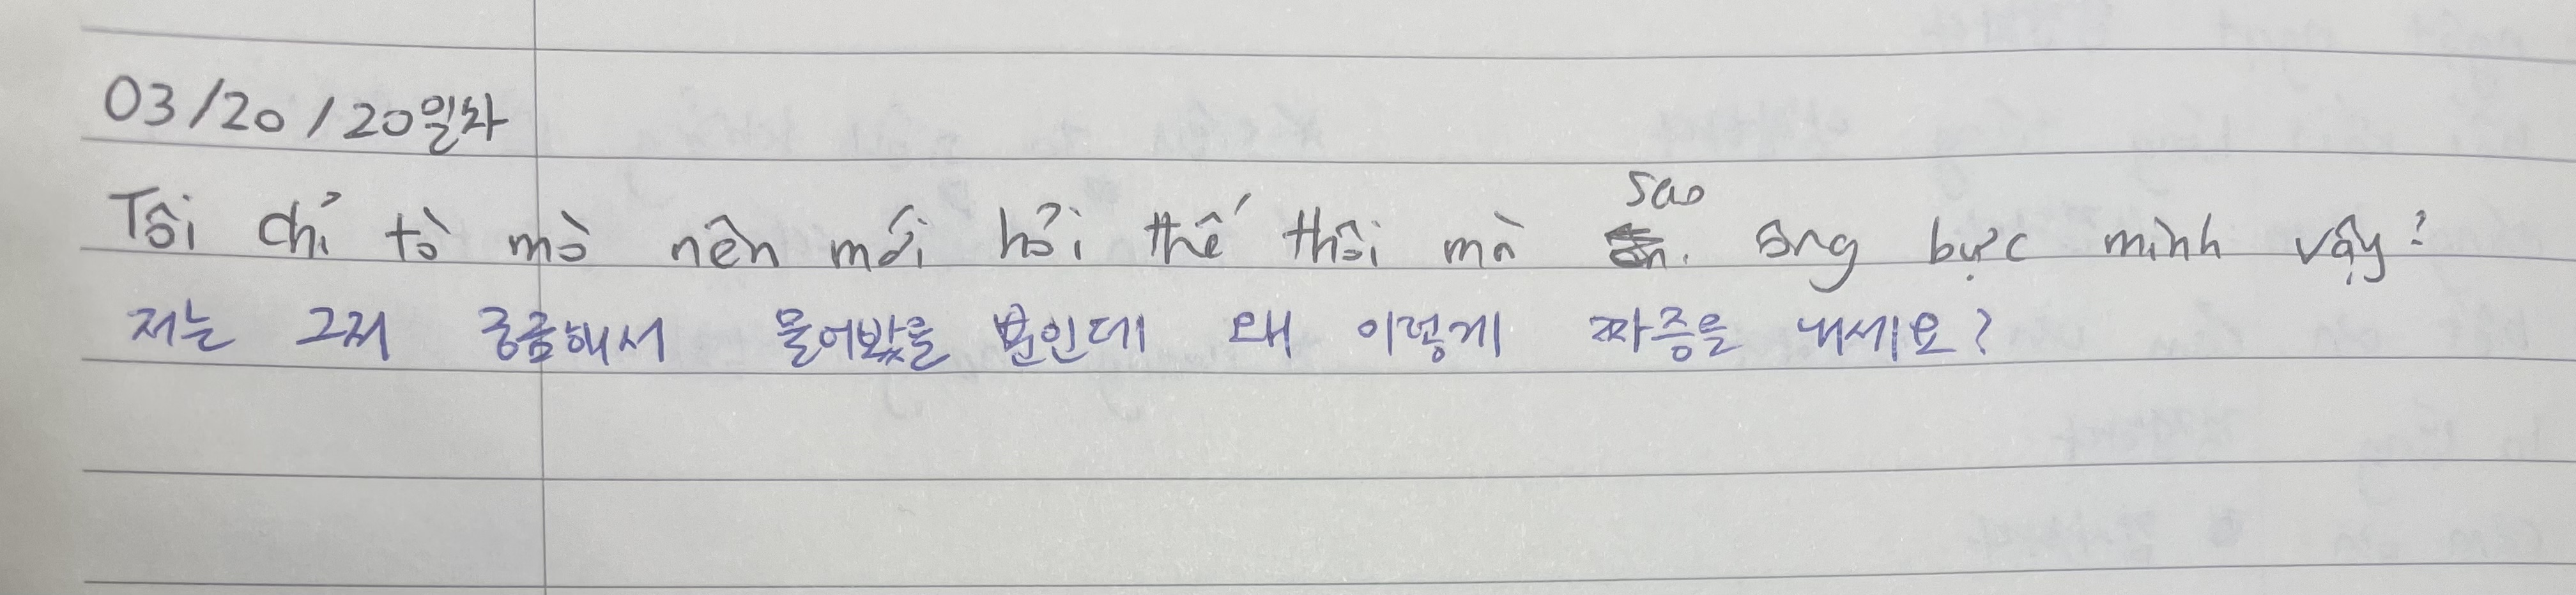 03/20/20일차
Tôi chỉ tò mò nên mới hỏi thế thôi mà sao ông bực mình vậy?
저는 그저 궁금해서 물어봤을 뿐인데 왜 이렇게 짜증을 내세요?